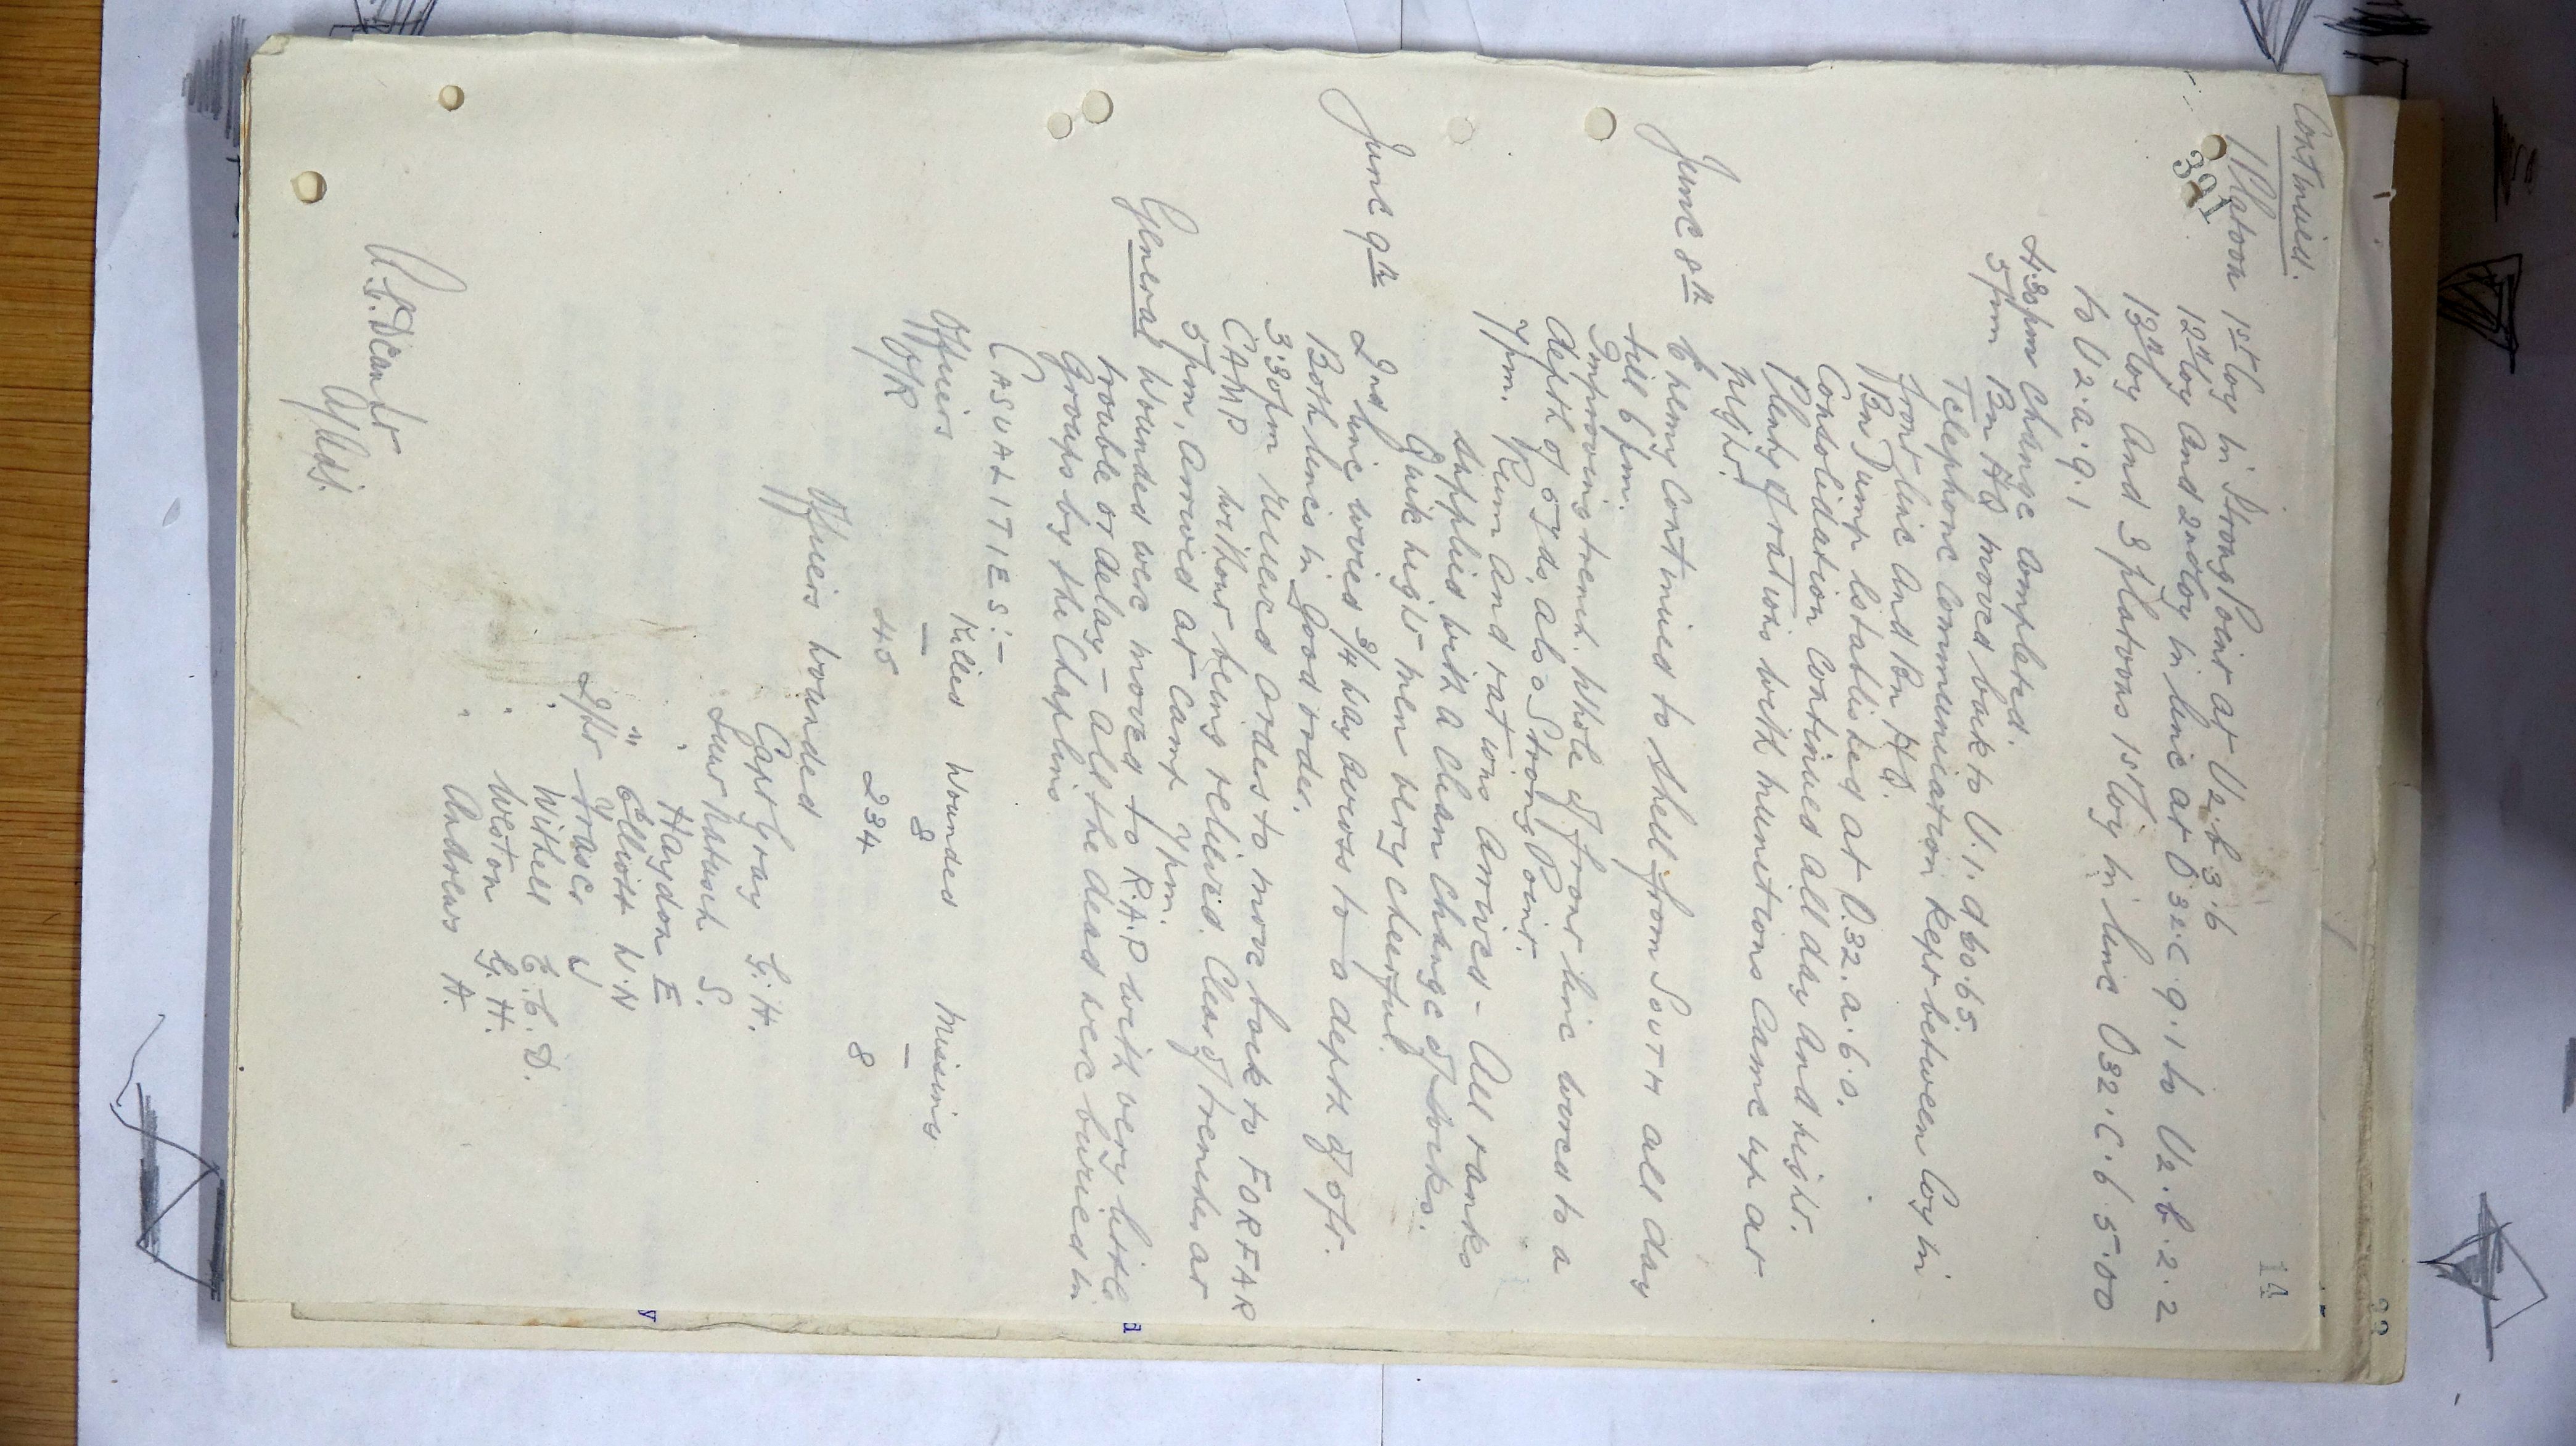 Continued.
14
1 Platoon 1st Coy in Strong Point at U2.b.3.6
321
12th Coy and 2nd Coy in line at O32.c.9.1 to U2.b.2.2
13th Coy and 3 platoons 1st Coy in line O32.C.6.5.00
to U2.a.9.1
4.30pm Change completed.
5pm Bn HQ moved back to U.1.d 60.65.
Telephone communication kept between Coy in
front line and Bn HQ.
Bn Dump established at O.32.a.6.0.
Consolidation continued all day and night.
Plenty of rations with munitions came up at
night.
June 8th Enemy continued to shell from SOUTH all day
till 6 pm.
Improving trench. Whole of front line wired to a
depth of 5 yds, also Strong Point.
7pm. Rum and rations arrived - All ranks
supplied with a clean change of socks.
Quiet night men very cheerful.
June 9th 2nd line wired 3/4 way across to a depth of 5ft.
Both lines in good order.
3.30pm received orders to move back to FORFAR
CAMP without being relieved. Clear of trenches at
5pm, arrived at Camp 7pm.
General Wounded were moved to R.A.P with very little
trouble or delay - all the dead were buried in
Groups by the Chaplins
CASUALITIES:-
Killed Wounded Missing
Officers — 8 —
O/R 45 234 8
Officers wounded
Capt Gray G.H.
Lieut Natusch S.
" Haydon E
" Elliott W.N
2/Lt Fraser J
" Withell C.C.D.
" Weston G.H.
" Andrews A.
Dean Lt
A/Adj.